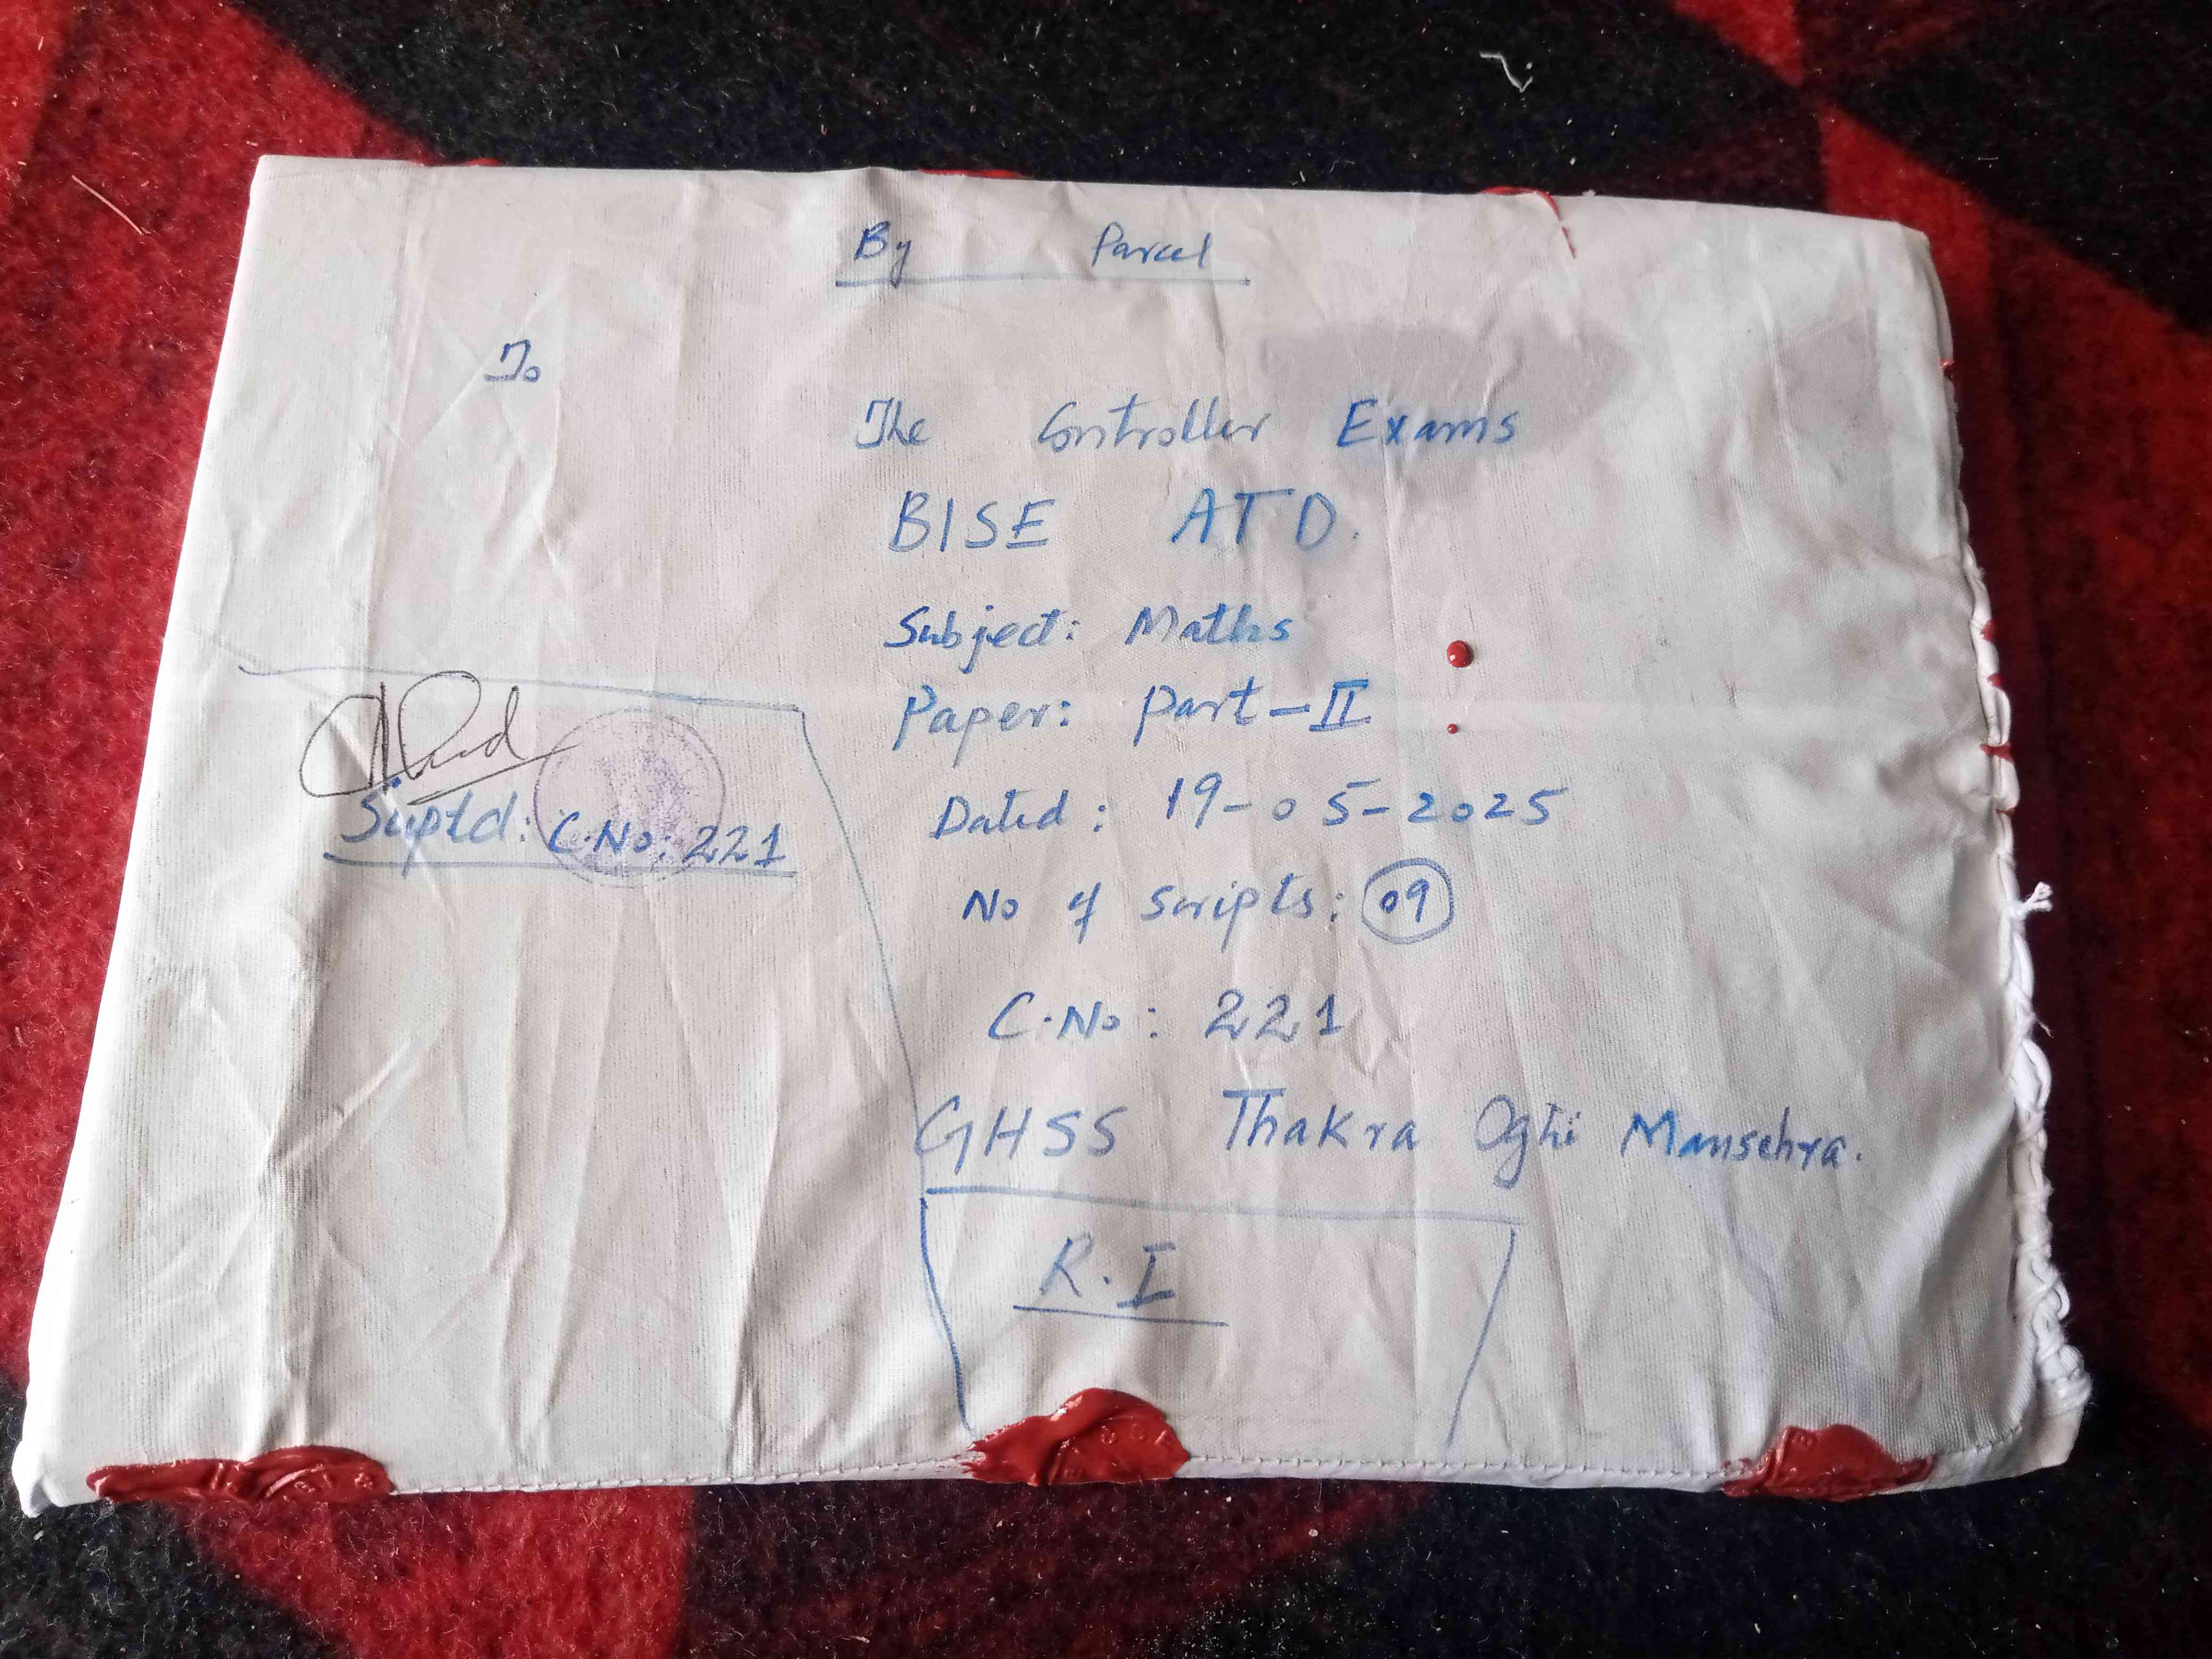 By Parcel
To
The Controller Exams
BISE ATD.
Subject: Maths
Paper: Part-II
Dated: 19-05-2025
No of scripts: 09
C.No: 221
GHSS Thakra Oghi Mansehra.
Suptd: C.No: 221
R.I